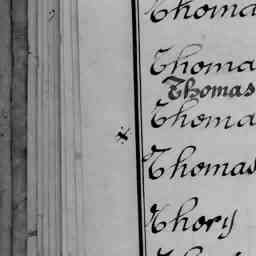 Thoma
Thoma
Thomas
Thoma
Thomas
Thory